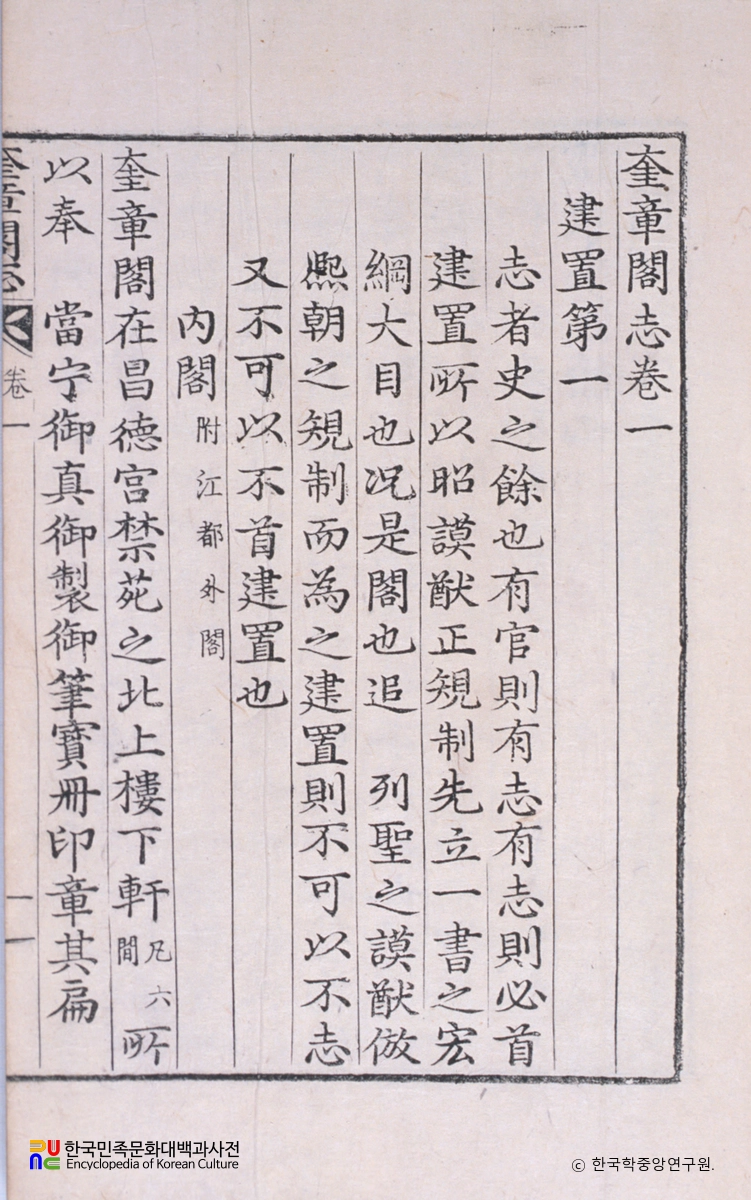 奎章閣志卷一
建置第一
志者史之餘也有官則有志有志則必首
建置所以昭謨猷正規制先立一書之宏
綱大目也况是閣也追　列聖之謨猷倣
熙朝之規制而為之建置則不可以不志
又不可以不首建置也
內閣附江都外閣
奎章閣在昌德宮禁苑之北上樓下軒凡六間所
以奉　當宁御真御製御筆寶冊印章其扁
奎章閣志 卷一 一
한국민족문화대백과사전
Encyclopedia of Korean Culture
© 한국학중앙연구원.